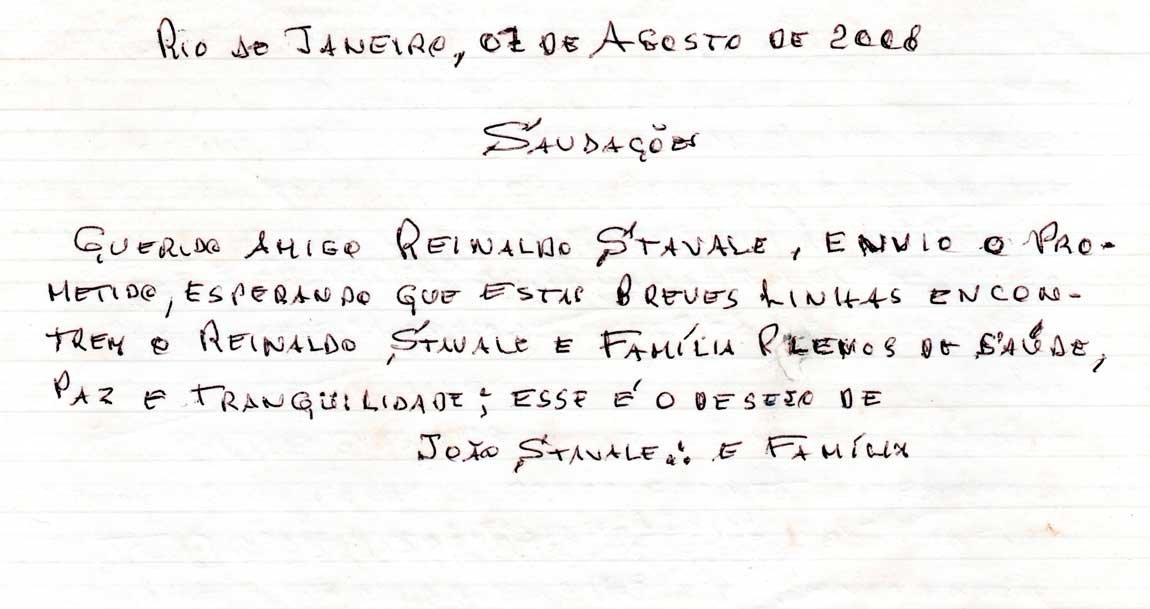 Rio de Janeiro, 07 de Agosto de 2008
Saudações
Querido amigo Reinaldo Stavale, envio o pro-
metido, esperando que estas breves linhas encon-
trem o Reinaldo Stavale e Família plemos de saúde,
Paz e tranqüilidade; esse é o desejo de
João Stavale.: e Família